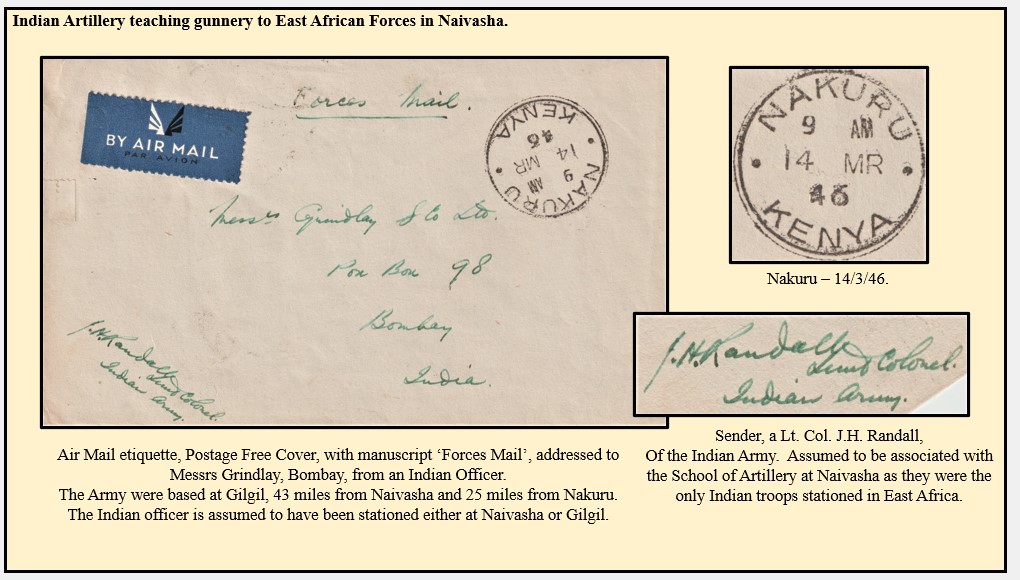 Indian Artillery teaching gunnery to East African Forces in Naivasha.
BY AIR MAIL
PAR AVION
Forces Mail.
NAKURU
9 AM
14 MR
46
KENYA
Messrs Grindlay & Co Ltd.
Box 98
Bombay
India.
J.H. Randall
Lieut Colonel.
Indian Army.
NAKURU
9 AM
14 MR
46
KENYA
Nakuru – 14/3/46.
J.H. Randall
Lieut Colonel.
Indian Army.
Air Mail etiquette, Postage Free Cover, with manuscript ‘Forces Mail’, addressed to
Messrs Grindlay, Bombay, from an Indian Officer.
The Army were based at Gilgil, 43 miles from Naivasha and 25 miles from Nakuru.
The Indian officer is assumed to have been stationed either at Naivasha or Gilgil.
Sender, a Lt. Col. J.H. Randall,
Of the Indian Army.  Assumed to be associated with
the School of Artillery at Naivasha as they were the
only Indian troops stationed in East Africa.